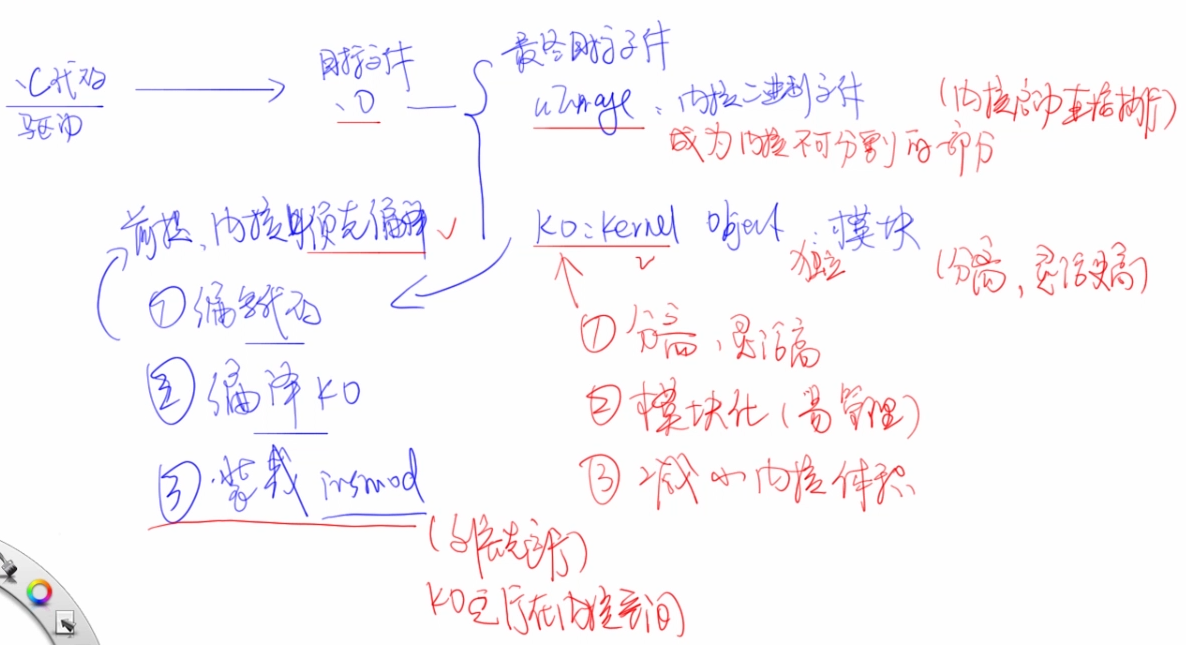 .C代码
驱动
目标文件
.O
最终目标文件
uImage : 内核二进制文件
(内核启动直接执行)
成为内核不可分割的部分
KO : Kernel Object : 模块
独立
(分离, 灵活更高)
前提、内核必须预先编译
① 编写代码
② 编译KO
③ 装载 insmod
① 分离, 灵活高
② 模块化 (易管理)
③ 减小内核体积
KO运行在内核空间